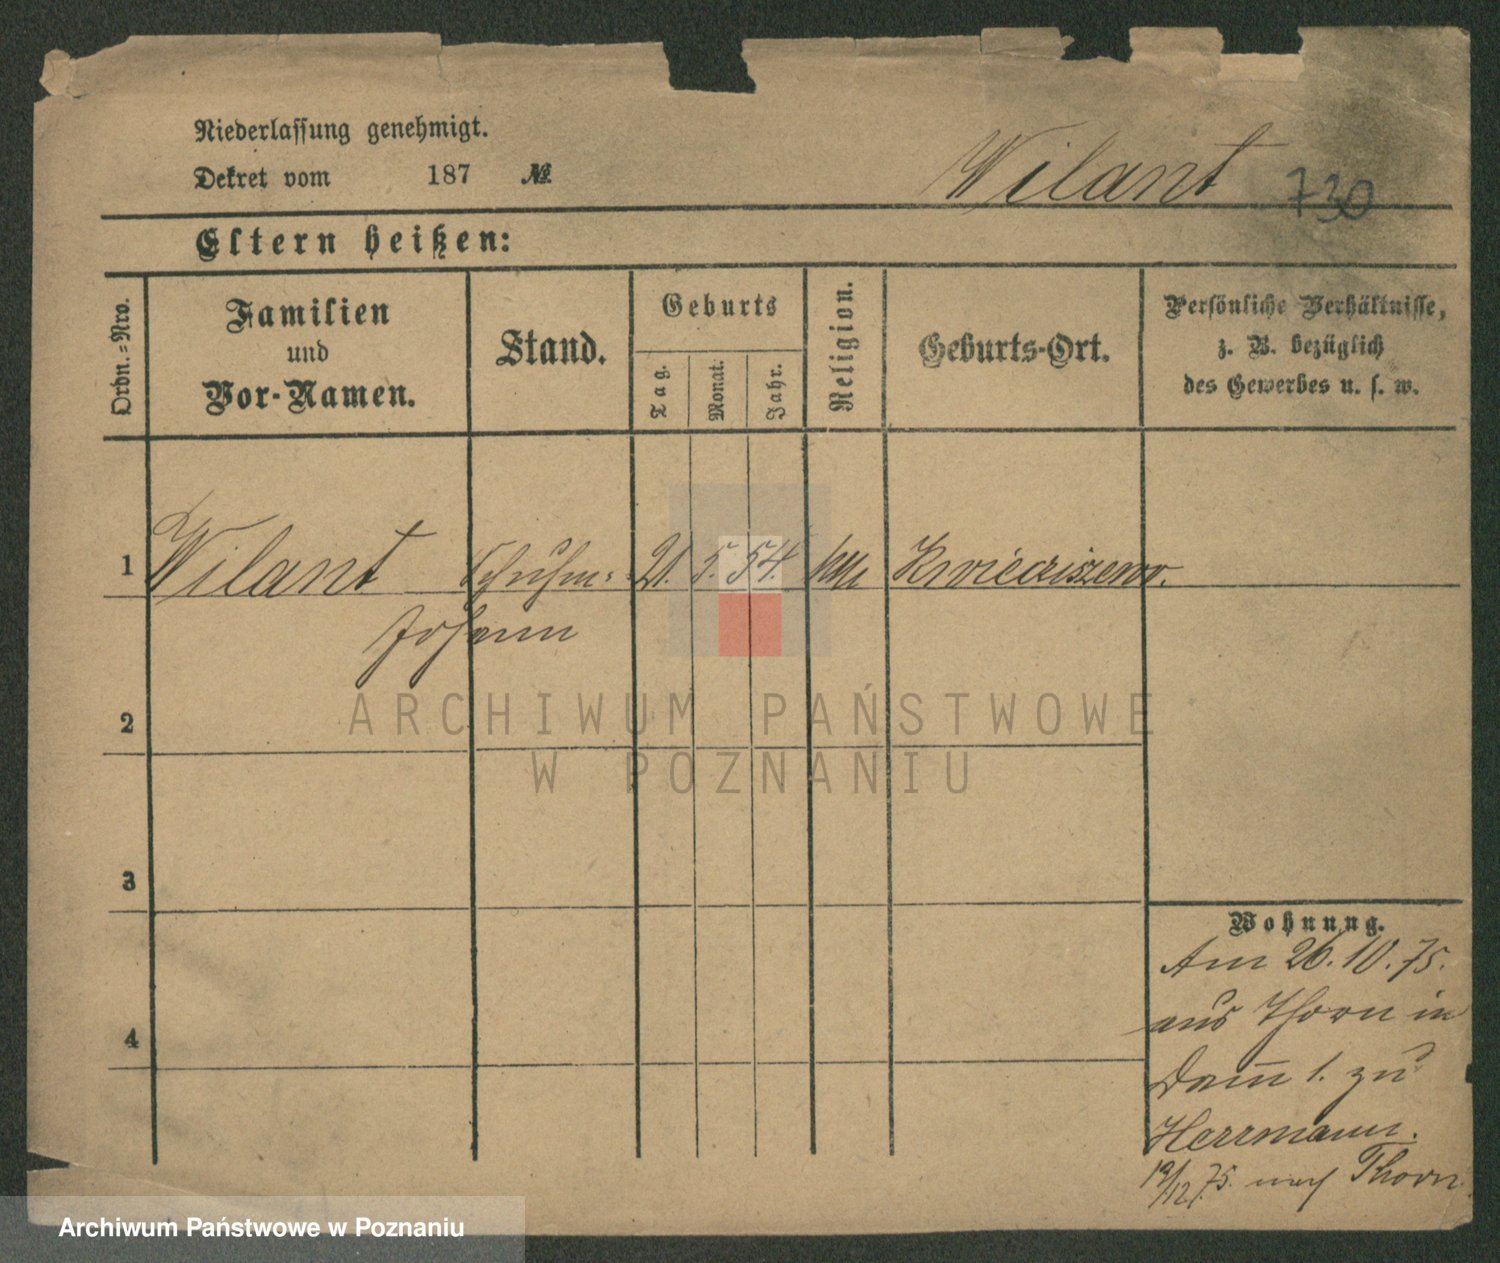 Niederlassung genehmigt.
Dekret vom 187 №
Wilant 730
Eltern heißen:
Ordn.-Nro.
Familien
und
Vor-Namen.
Stand.
Geburts
Tag.
Monat.
Jahr.
Religion.
Geburts-Ort.
Persönliche Verhältnisse,
z. B. bezüglich
des Gewerbes u. s. w.
1 Wilant Schuhm: 21. 5. 54. kth Kwieciszewo.
Johann
2
3
4
Wohnung.
Am 26.10.75.
aus Thorn in
Dom 1. zu
Herrmann.
19/12.75. nach Thorn.
ARCHIWUM PAŃSTWOWE
W POZNANIU
Archiwum Państwowe w Poznaniu